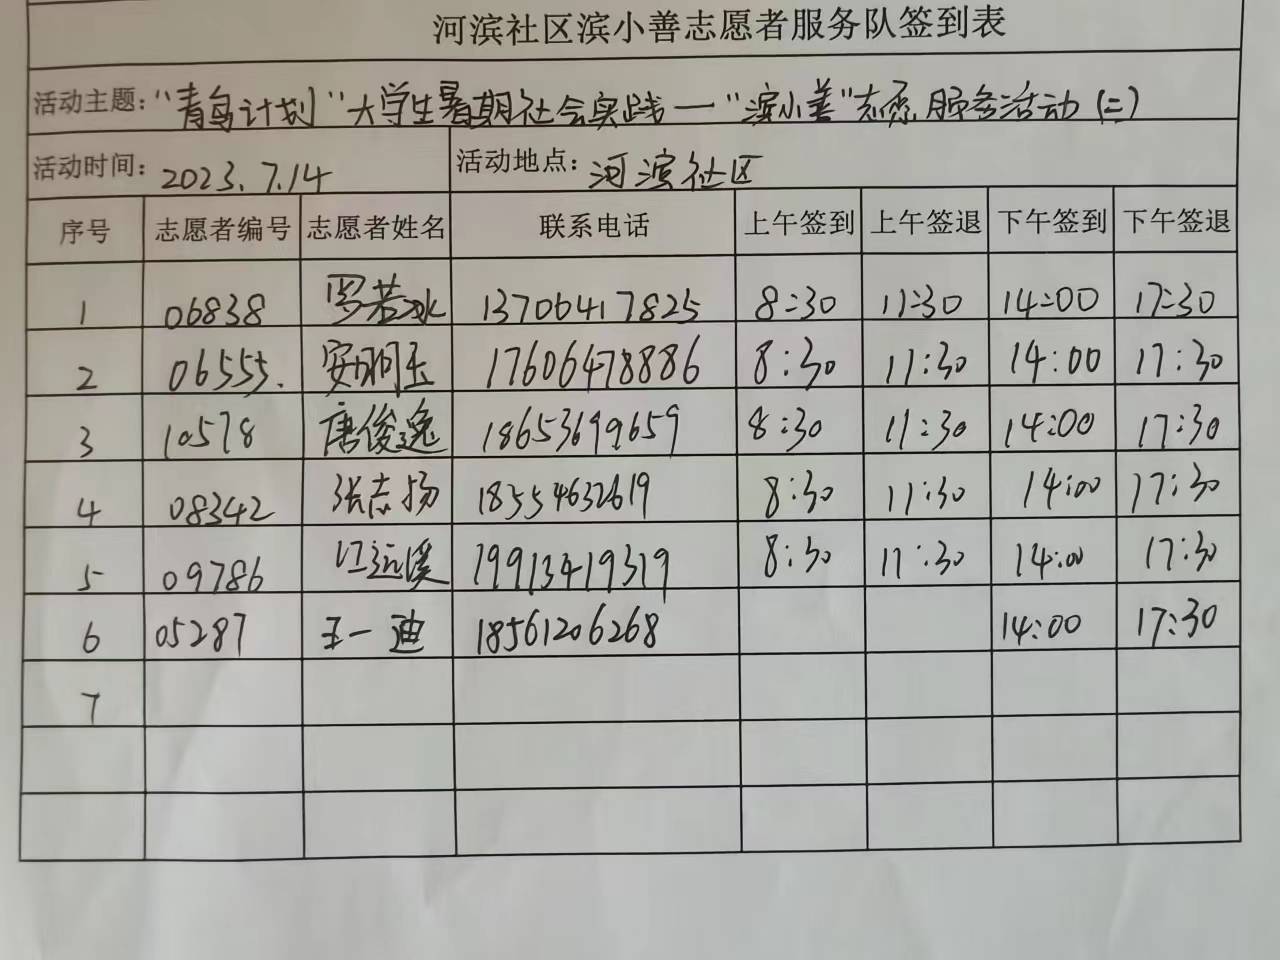 河滨社区滨小善志愿者服务队签到表
活动主题："青鸟计划"大学生暑期社会实践—"滨小善"志愿服务活动(二)
活动时间：2023.7.14 活动地点：河滨社区
序号 志愿者编号 志愿者姓名 联系电话 上午签到 上午签退 下午签到 下午签退
1 06838 罗若冰 13706417825 8:30 11:30 14:00 17:30
2 06555. 安玥玉 17606478886 8:30 11:30 14:00 17:30
3 10578 唐俊逸 18653699659 8:30 11:30 14:00 17:30
4 08342 张志扬 18554632619 8:30 11:30 14:00 17:30
5 09786 江远溪 19913419319 8:30 11:30 14:00 17:30
6 05287 王一迪 18561206268 14:00 17:30
7